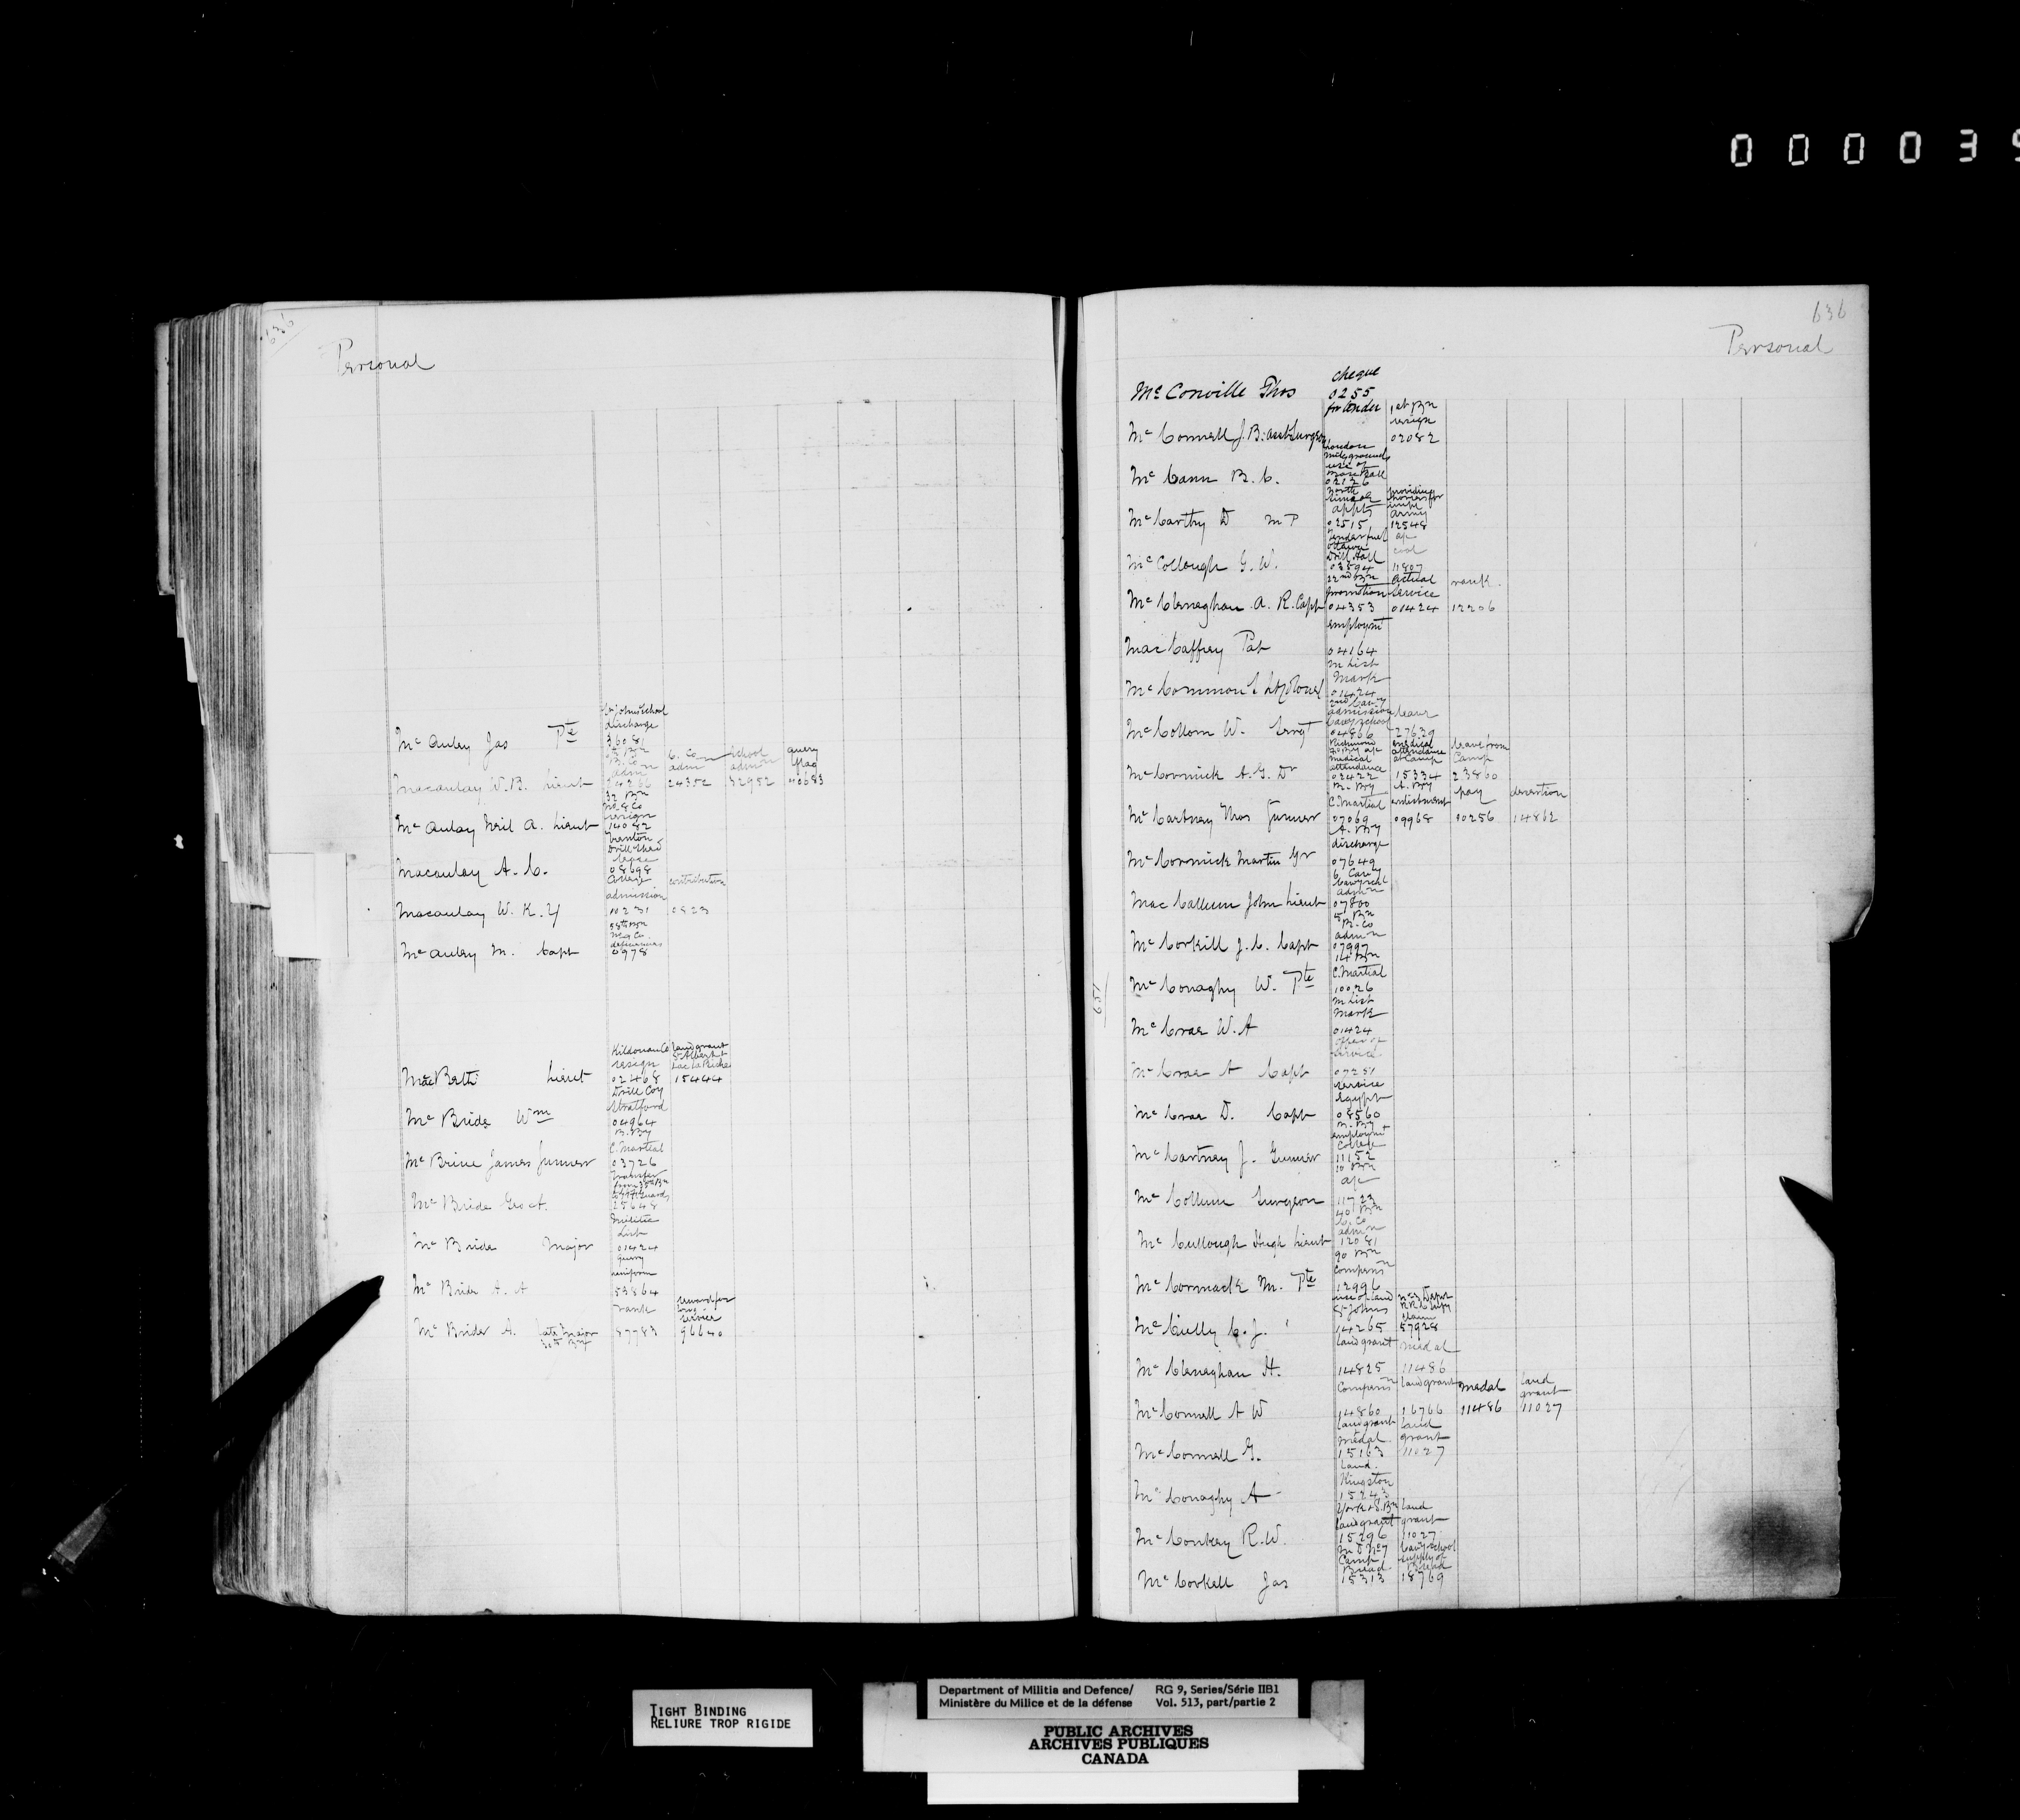 0 0 0 0 3 9
636
Personal
St Johns School
discharge
McAuley Jas Pte 36081
B. Co adm C. Co adm School admn query
Macaulay W.B. Lieut 24266 24352 32952 40683
32 Bn
No 8 Co
resign
McAulay Neil A. Lieut 14082
Trenton
Drill Shed
lease
Macaulay A. C. 08698
College contribution
admission
Macaulay W. K. 10231 0823
58th Bn
No 4 Co.
deficiencies
McAuley M. Capt 0978
Kildonan Co land grant
resign St Albert &
Lac La Biche
MacBeth Lieut 02468 15444
Drill Coy
Stratford
McBride Wm 04964
B. By
C. Martial
McBrine James Gunner 03726
transfer
from 35th Bn
to Ft Guards
McBride Geo A. 25648
Militia
List
McBride Major 01424
query
uniform
McBride A. A 53864
rank reward for
long
service
McBride A. late Major 87783 96640
30th Bn
636
Personal
cheque
McConville Thos 0255
for tender 1st Bn
resign
McConnell J. B. asst Surgeon 02082
London
Mily grounds
use of
Base Ball
McCann B. C. 02126
North
Simcoe providing
appts horses for
army
McCarthy D MP 02515 12548
Tender fuel ap
Ottawa coal
Drill Hall
McCollough G. W. 03594 11807
22nd Bn actual rank
promotion Service
McCleneghan A. R. Capt 04353 01424 12206
employmt
MacCaffrey Pat 04164
M List
Mark
McCommon Lt Colonel 01424
admission leave
Cavy School
McCollom W. Sergt 04866 27639
Richmond medical leave from
F. By ap attendance Camp
medical at Camp
attendance
McCormick A. G. Dr 02422 15334 23860
B. By A. By pay desertion
C. Martial enlistment
McCartney Thos Gunner 07069 09968 10256 14862
A. By
discharge
McCormick Martin Gr 07649
6 Cavy
Cavy Schl
admn
MacCallum John Lieut 07800
5 Bn
B. Co
admn
McCorkill J. C. Capt 07997
14 Bn
C. Martial
McConaghy W. Pte 10026
M List
Mark
McCrae W. A 01424
offer of
service
McCrae A Capt 07251
service
Egypt
McCrae D. Capt 08560
B. By
employmt
College
McCartney J. Gunner 11152
10 Bn
ap
McCollum Surgeon 11723
40 Bn
C. Co
admn
McCullough Hugh Lieut 12081
90 Bn
Compensn
McCormack M. Pte 12996
use of land
St Johns
claim
McCully C. J. 14265 57928
land grant medal
McCleneghan H. 14825 11486
Compensn land grant medal land
grant
McConnell A W 14860 16766 11486 11027
land grant land
medal grant
McConnell G. 15163 11027
land
Kingston
McConaghy A 15243
York & S. Bn land
land grant grant
McConkey R. W. 15296 11027
M D No 7 Cavy School
Camp supply of
Bread Bread
McCorkell Jas 15313 18769
TIGHT BINDING
RELIURE TROP RIGIDE
Department of Militia and Defence/ RG 9, Series/Série IIB1
Ministère du Milice et de la défense Vol. 513, part/partie 2
PUBLIC ARCHIVES
ARCHIVES PUBLIQUES
CANADA